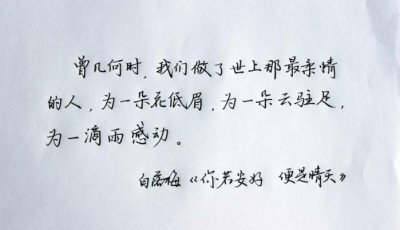 曾几何时，我们做了世上那最亲情
的人，为一朵花低眉，为一朵云驻足，
为一滴雨感动。
白落梅《你若安好 便是晴天》